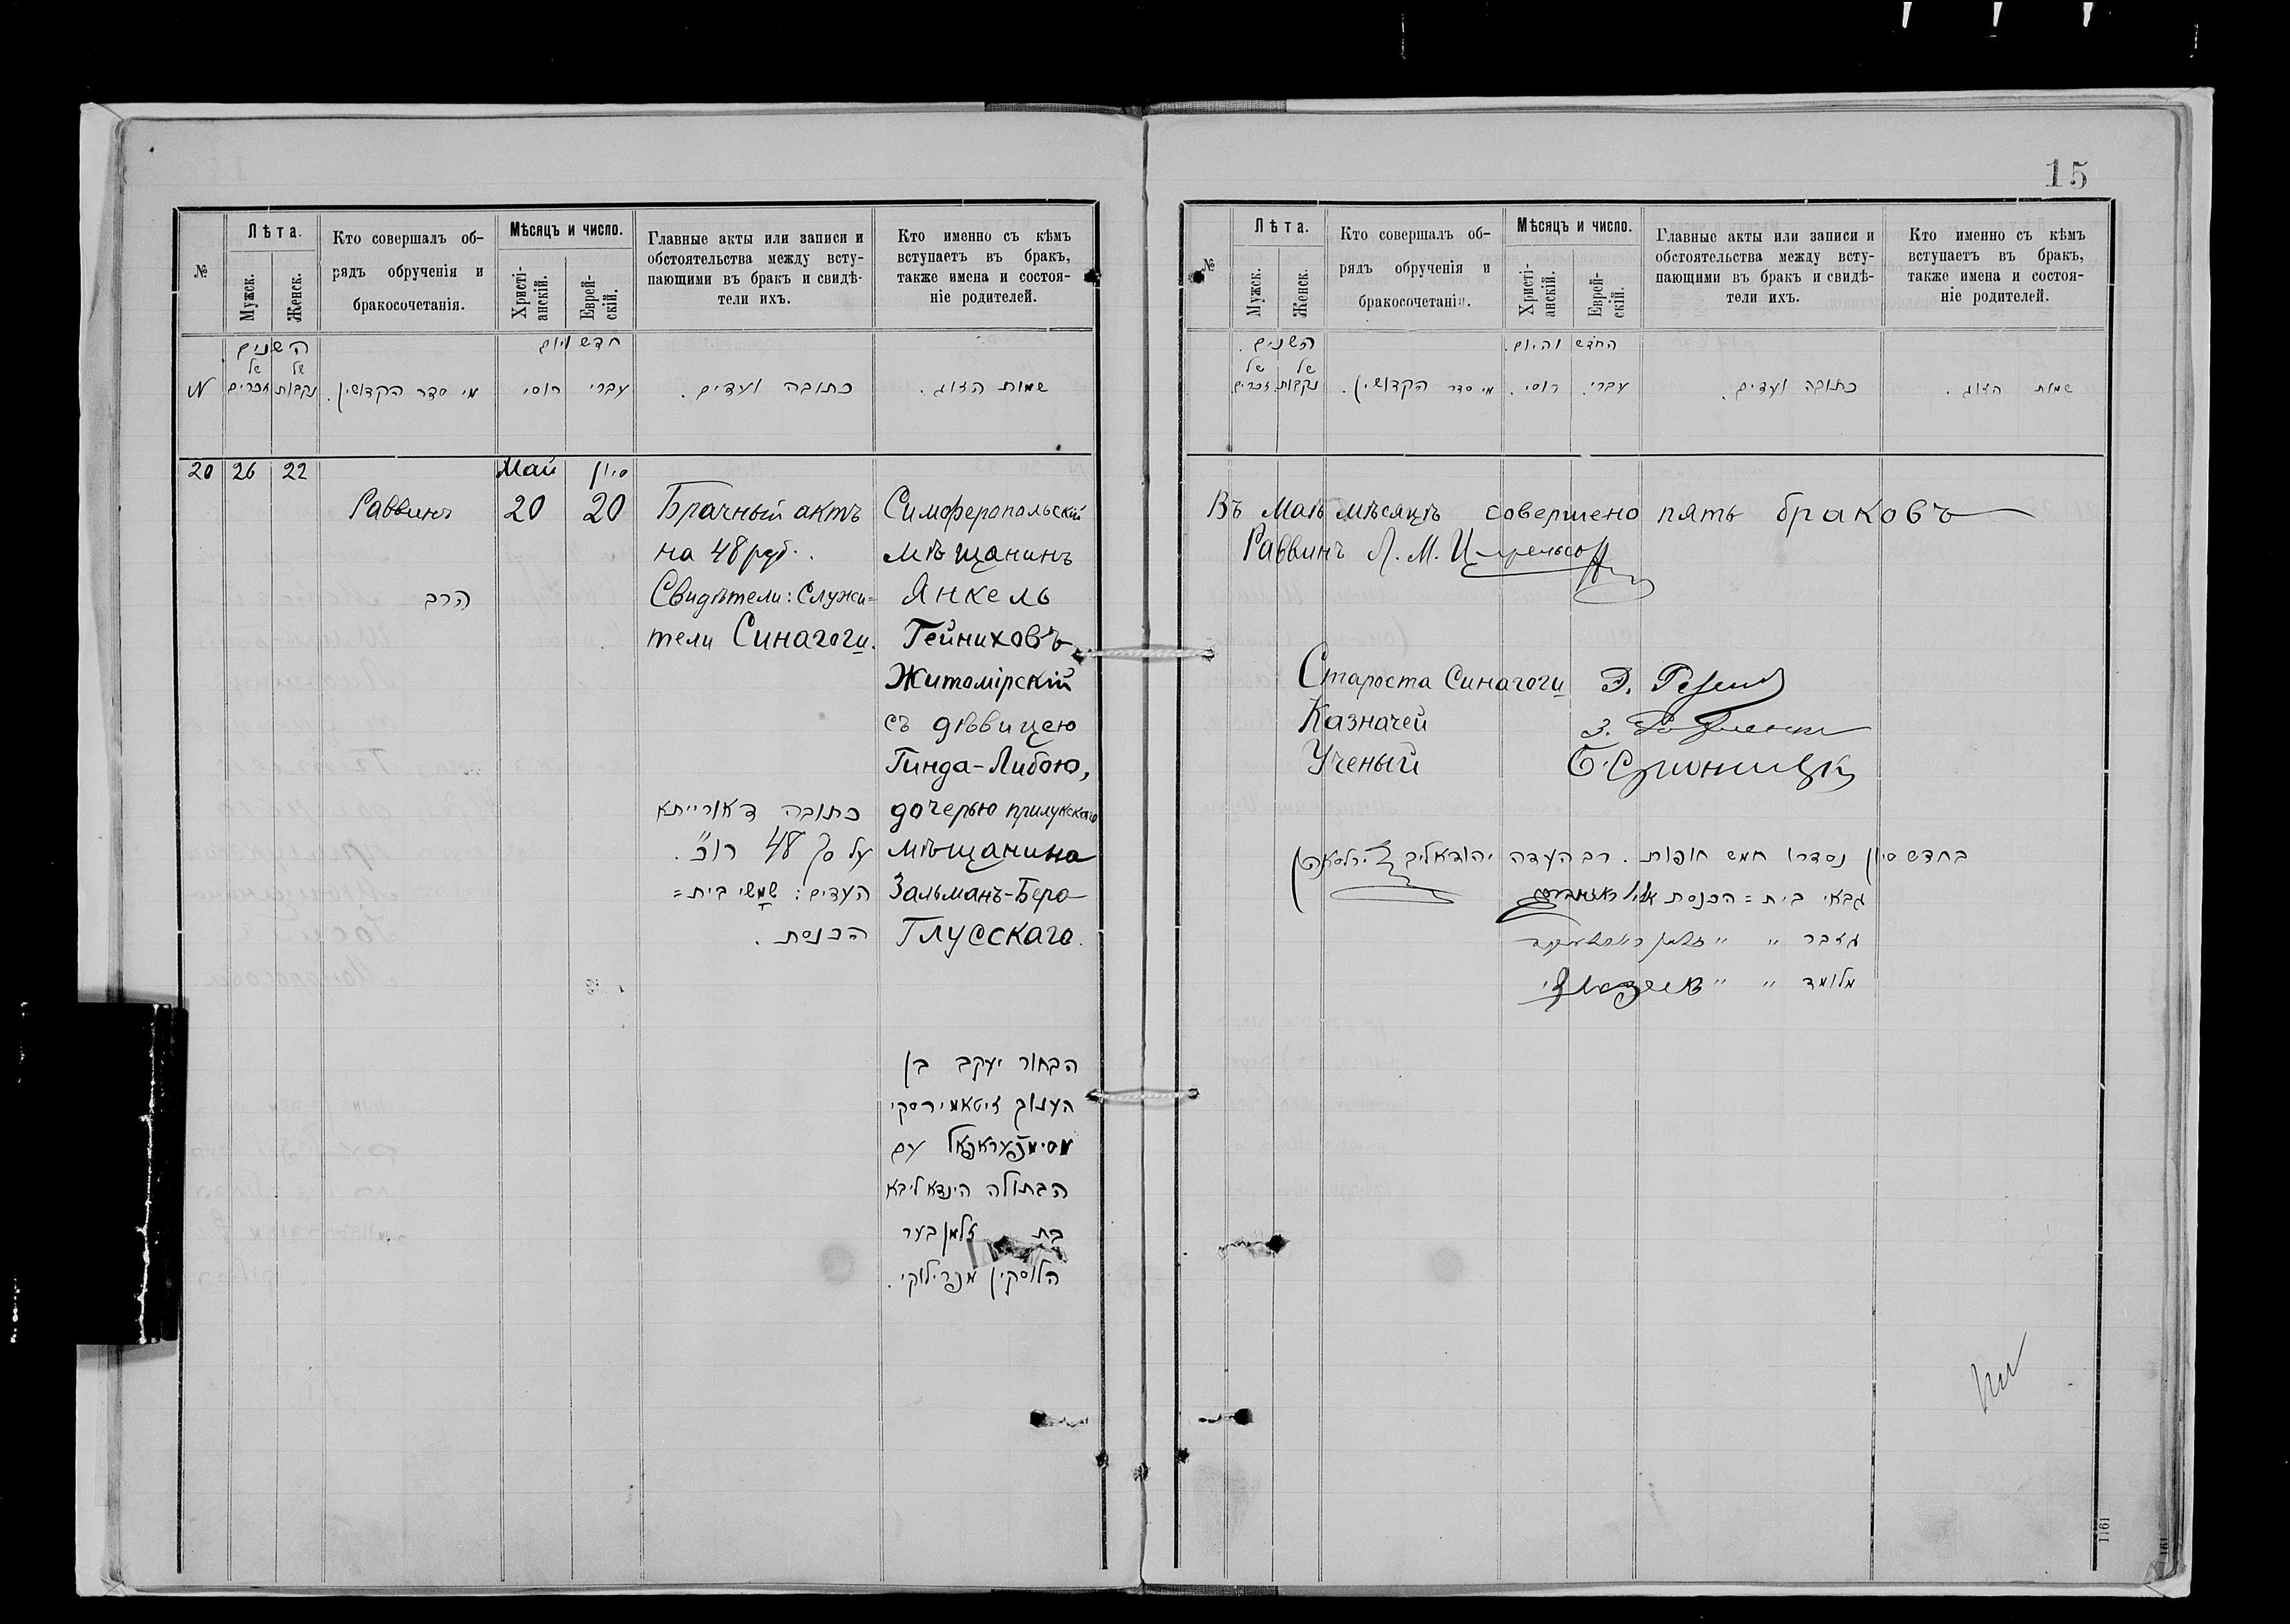 15
№
Лѣта.
Мужск.
Женск.
Кто совершалъ об-
рядъ обрученія и
бракосочетанія.
Мѣсяцъ и число.
Христі-
анскій.
Еврей-
скій.
Главные акты или записи и
обстоятельства между всту-
пающими въ бракъ и свидѣ-
тели ихъ.
Кто именно съ кѣмъ
вступаетъ въ бракъ,
также имена и состоя-
ніе родителей.
השנים
של של
זכרים נקבות
N
מי סדר הקדושין.
חדש ויום
עברי רוסי
כתובה ועדים.
שמות הזוג.
20 26 22
Раввинъ
הרב
Май סיון
20 20
Брачный актъ
на 48 руб.
Свидѣтели: Служи=
тели Синагоги.
כתובה דאורייתא
על סך 48 רו"כ.
העדים: שמשי בית=
הכנסת.
Симферопольскій
мѣщанинъ
Янкель
Гейниховъ
Житомірскій
съ дѣвицею
Гинда-Либою,
дочерью прилукскаго
мѣщанина
Зальманъ-Бера
Глусскаго.
הבחור יעקב בן
העניך זיטאמירסקי
מסימפעראפאל עם
הבתולה הינדא ליבא
בת זלמן בער
הלוסקין מפרילוקי.
№
Лѣта.
Мужск.
Женск.
Кто совершалъ об-
рядъ обрученія и
бракосочетанія.
Мѣсяцъ и число.
Христі-
анскій.
Еврей-
скій.
Главные акты или записи и
обстоятельства между всту-
пающими въ бракъ и свидѣ-
тели ихъ.
Кто именно съ кѣмъ
вступаетъ въ бракъ,
также имена и состоя-
ніе родителей.
השנים.
של של
זכרים נקבות
מי סדר הקדושין.
החדש והיום.
עברי. רוסי.
כתובה ועדים.
שמות הזוג.
Въ Маѣ мѣсяцѣ совершено пять браковъ
Раввинъ Л. М. Цирельсонъ
Староста Синагоги Э.
Казначей З.
Ученый Б.
בחדש סיון נסדרו חמש חופות. רב העדה יהודא ליב צירלסאהן
גבאי בית=הכנסת
גזבר " " זלמן
מלומד " "
1161